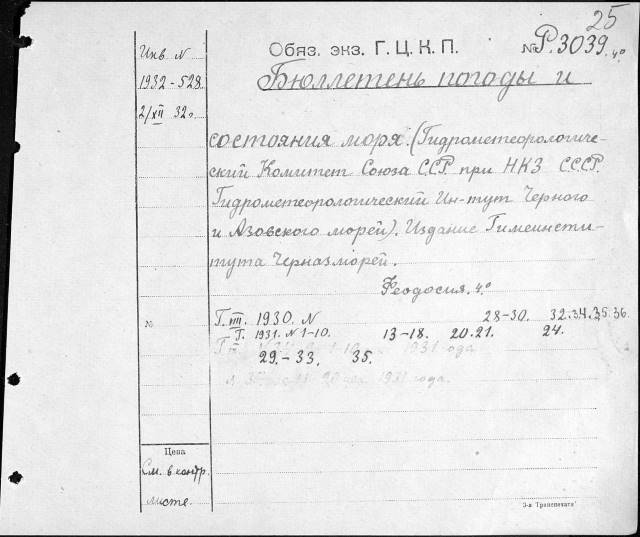 25
Инв. N
Обяз. экз. Г. Ц. К. П.
№ Р.3039. 4º
1932-528
2/XII 32г.
Бюллетень погоды и
состояния моря. (Гидрометеорологиче-
ский Комитет Союза ССР. при НКЗ СССР.
Гидрометеорологический Ин-тут Черного
и Азовского морей). Издание Гимеинсти-
тута Черназморей.
Феодосия. 4º
№
Г. III. 1930. N 28-30. 32.34.35.36.
Г. 1931. N 1-10. 13-18. 20.21. 24.
1931 года
29.-33. 35.
1931 года.
Цена
См. в контр.
листе.
3-я Транспечать